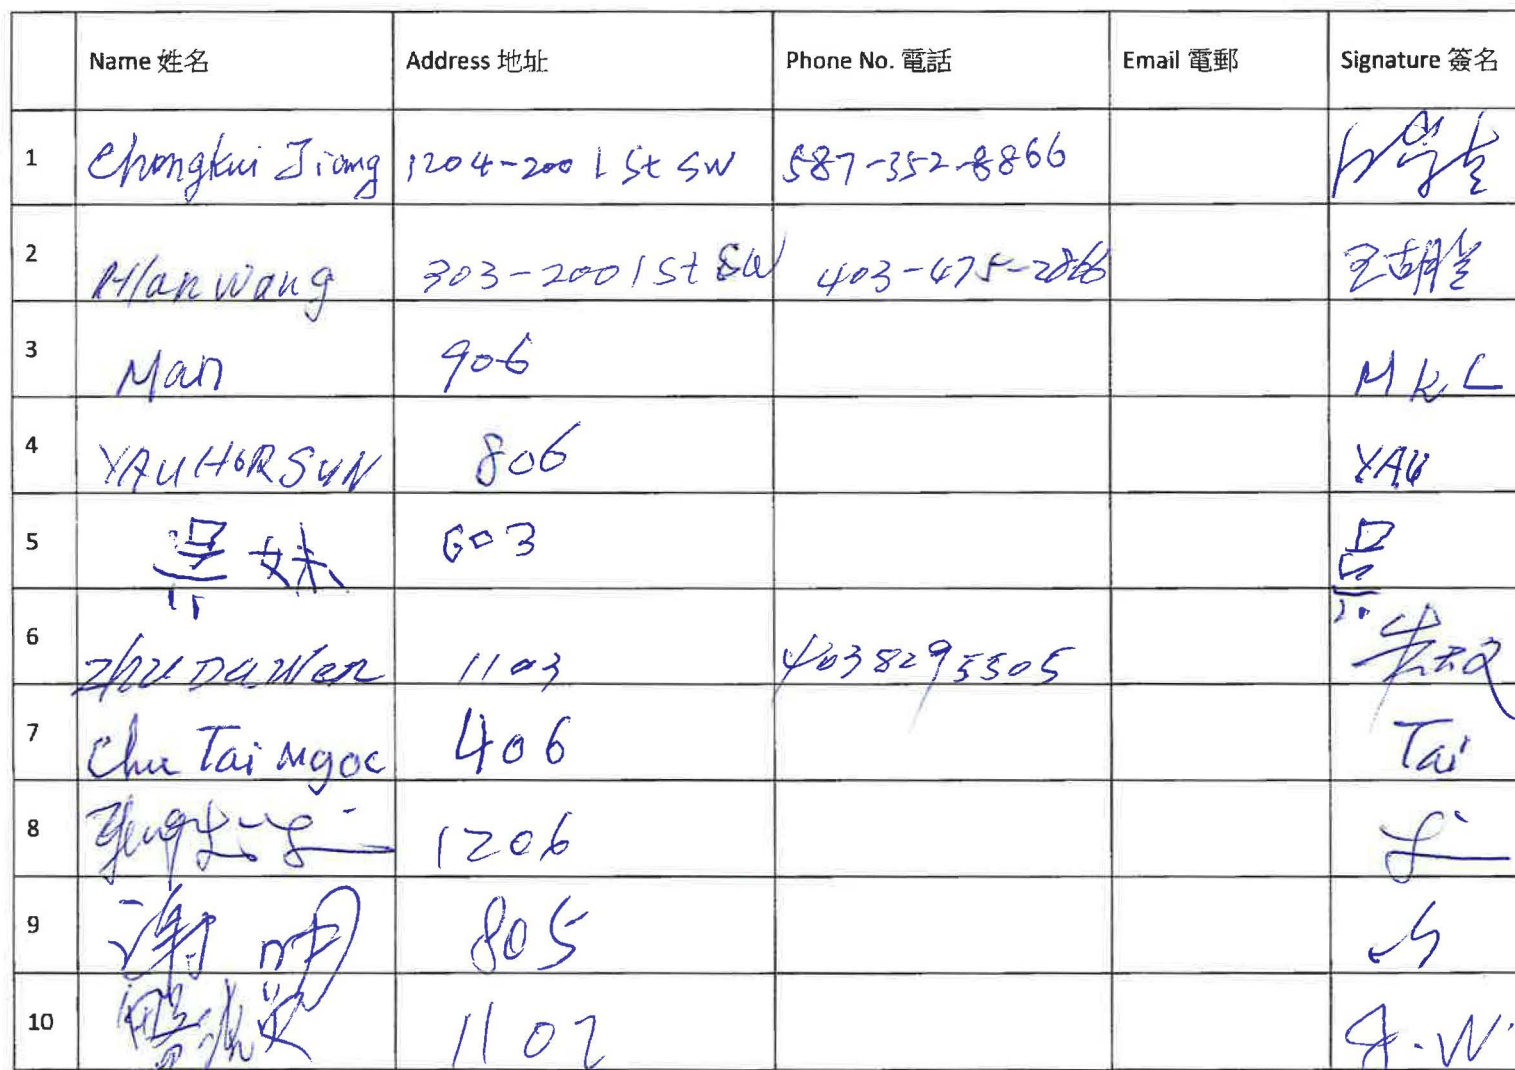 Name 姓名 Address 地址 Phone No. 電話 Email 電郵 Signature 簽名
1 Chongkui Jiang 1204-200 1 St SW 587-352-8866
2 Wang 303-200 1 St SW 403-475-2866 王胡兰
3 Man 906 M K L
4 YAU HOR SUN 806 YAU
5 吴妹 603 吴
6 Zhu Da Wen 1103 4038295505 朱大文
7 Chu Tai Ngoc 406 Tai
8 1206
9 谢 805
10 1102 S.W